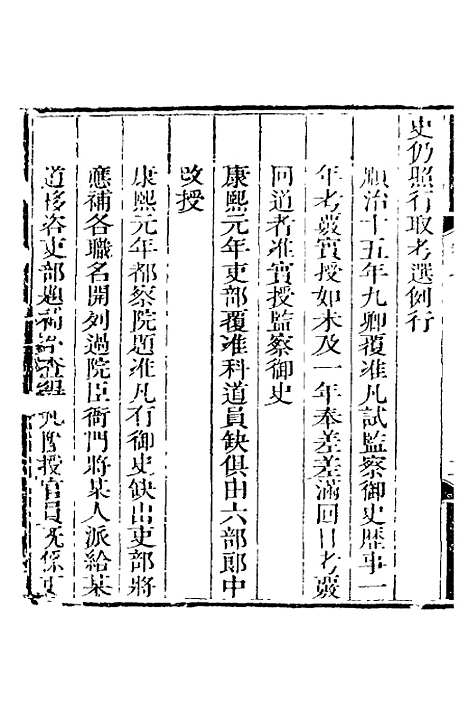 史仍照行取考選例行
順治十五年九卿覆准凡試監察御史歷事一
年考覈實授如未及一年奉差差滿回日考覈
回道者准實授監察御史
康熙元年吏部覆准科道員缺俱由六部郎中
改授
康熙元年都察院題准凡有御史缺出吏部將
應補各職名開列過院臣衙門將某人派給某
道移咨吏部題補 查 授官員既係